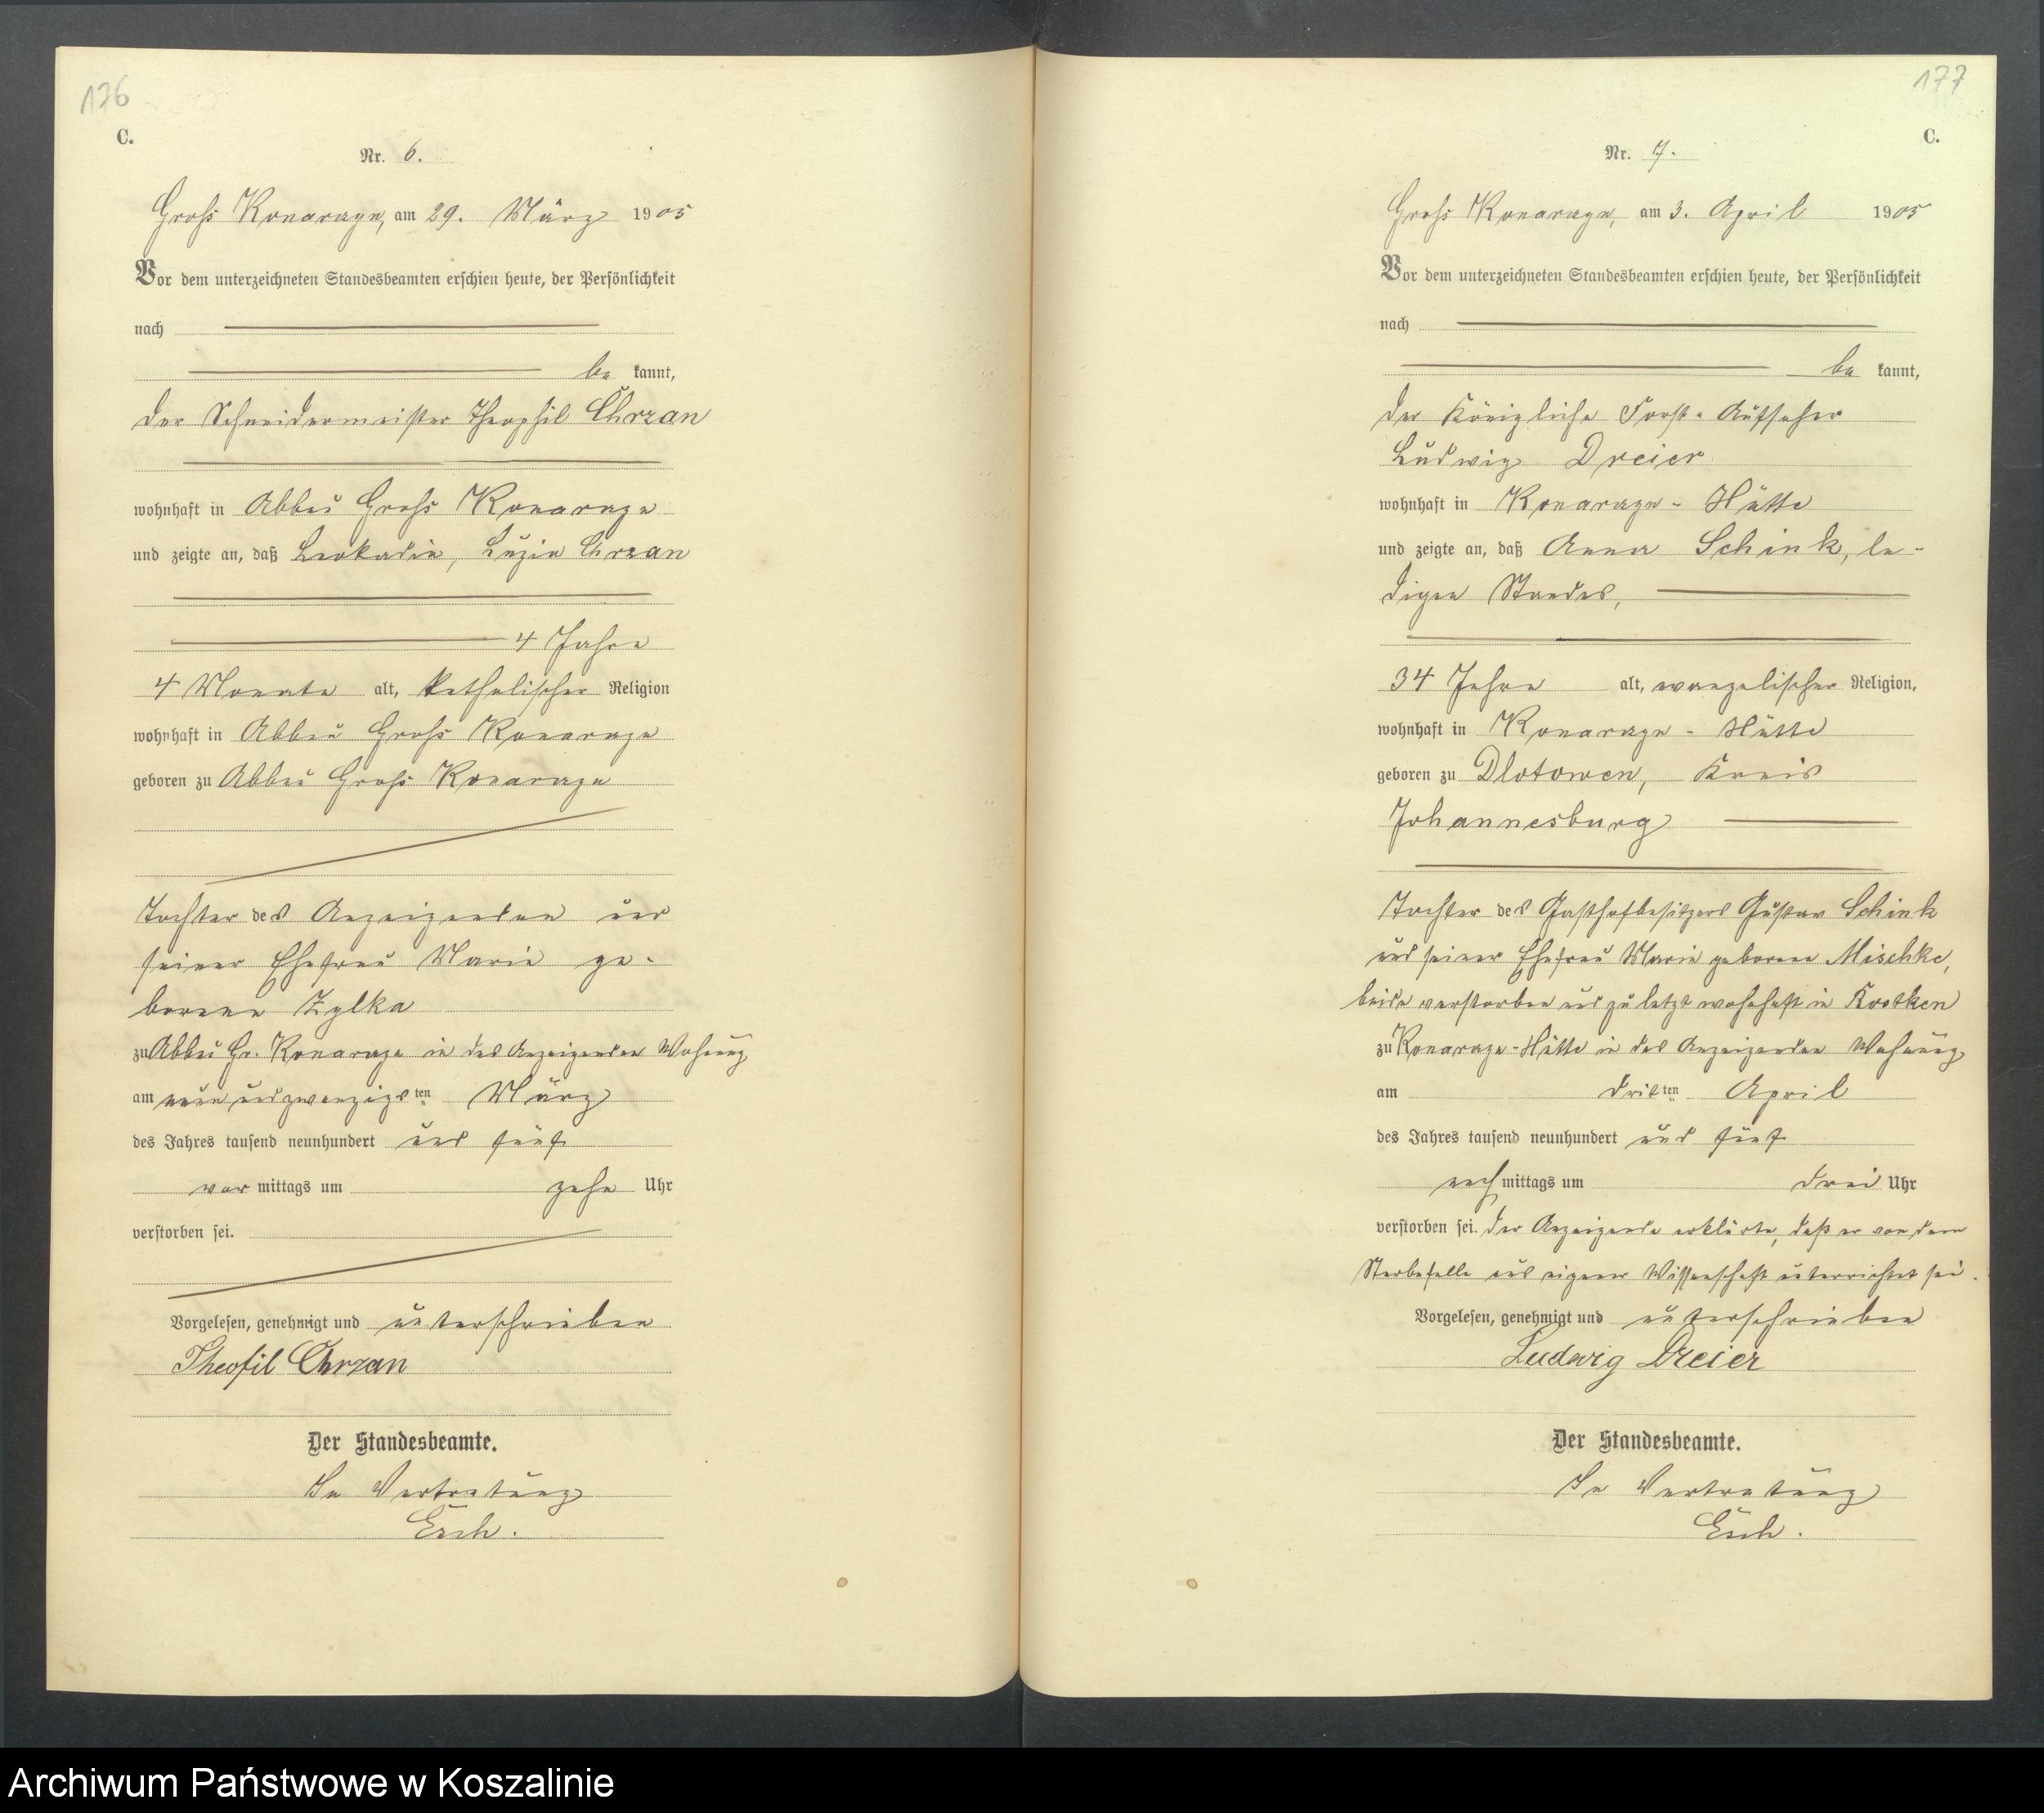 176
C.
Nr. 6.
Groß Konarczyn, am 29. März 1905
Vor dem unterzeichneten Standesbeamten erschien heute, der Persönlichkeit
nach
be kannt,
der Schneidermeister Theophil Chrzan
wohnhaft in Abbau Groß Konarczyn
und zeigte an, daß Leokadia, Luzia Chrzan
4 Jahre
4 Monate alt, katholischer Religion
wohnhaft in Abbau Groß Konarczyn
geboren zu Abbau Groß Konarczyn
Tochter des Anzeigenden und
seiner Ehefrau Marie ge-
borene Zylka
zu Abbau Gr. Konarczyn in des Anzeigenden Wohnung
am neun und zwanzigsten März
des Jahres tausend neunhundert und fünf
vor mittags um zehn Uhr
verstorben sei.
Vorgelesen, genehmigt und unterschrieben
Theofil Chrzan
Der Standesbeamte.
In Vertretung
177
C.
Nr. 7.
Groß Konarczyn, am 3. April 1905
Vor dem unterzeichneten Standesbeamten erschien heute, der Persönlichkeit
nach
be kannt,
der Königliche Forst-Aufseher
Ludwig Dreier
wohnhaft in Konarczyn-Hütte
und zeigte an, daß Anna Schink, le-
digen Standes,
34 Jahre alt, evangelischer Religion,
wohnhaft in Konarczyn-Hütte
geboren zu Dlotowen, Kreis
Johannesburg
Tochter des Gasthofbesitzers Gustav Schink
und seiner Ehefrau Marie geborene Mischke,
beide verstorben und zuletzt wohnhaft in Kosken
zu Konarczyn-Hütte in des Anzeigenden Wohnung
am dritten April
des Jahres tausend neunhundert und fünf
nach mittags um drei Uhr
verstorben sei. Der Anzeigende erklärte, daß er von dem
Sterbefalle aus eigener Wissenschaft unterrichtet sei.
Vorgelesen, genehmigt und unterschrieben
Ludwig Dreier
Der Standesbeamte.
In Vertretung
Archiwum Państwowe w Koszalinie